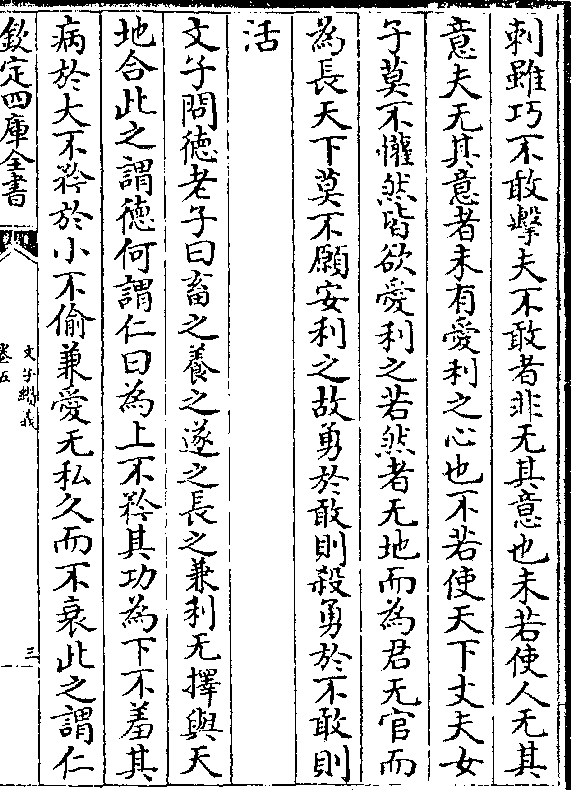 刺雖巧不敢擊夫不敢者非无其意也未若使人无其
意夫无其意者未有愛利之心也不若使天下丈夫女
子莫不懽然皆欲愛利之若然者无地而為君无官而
為長天下莫不願安利之故勇於敢則殺勇於不敢則
活
文子問德老子曰畜之養之遂之長之兼利无擇與天
地合此之謂德何謂仁曰為上不矜其功為下不羞其
病於大不矜於小不偷兼愛无私久而不衰此之謂仁
欽定四庫全書
文子纘義
卷五
三